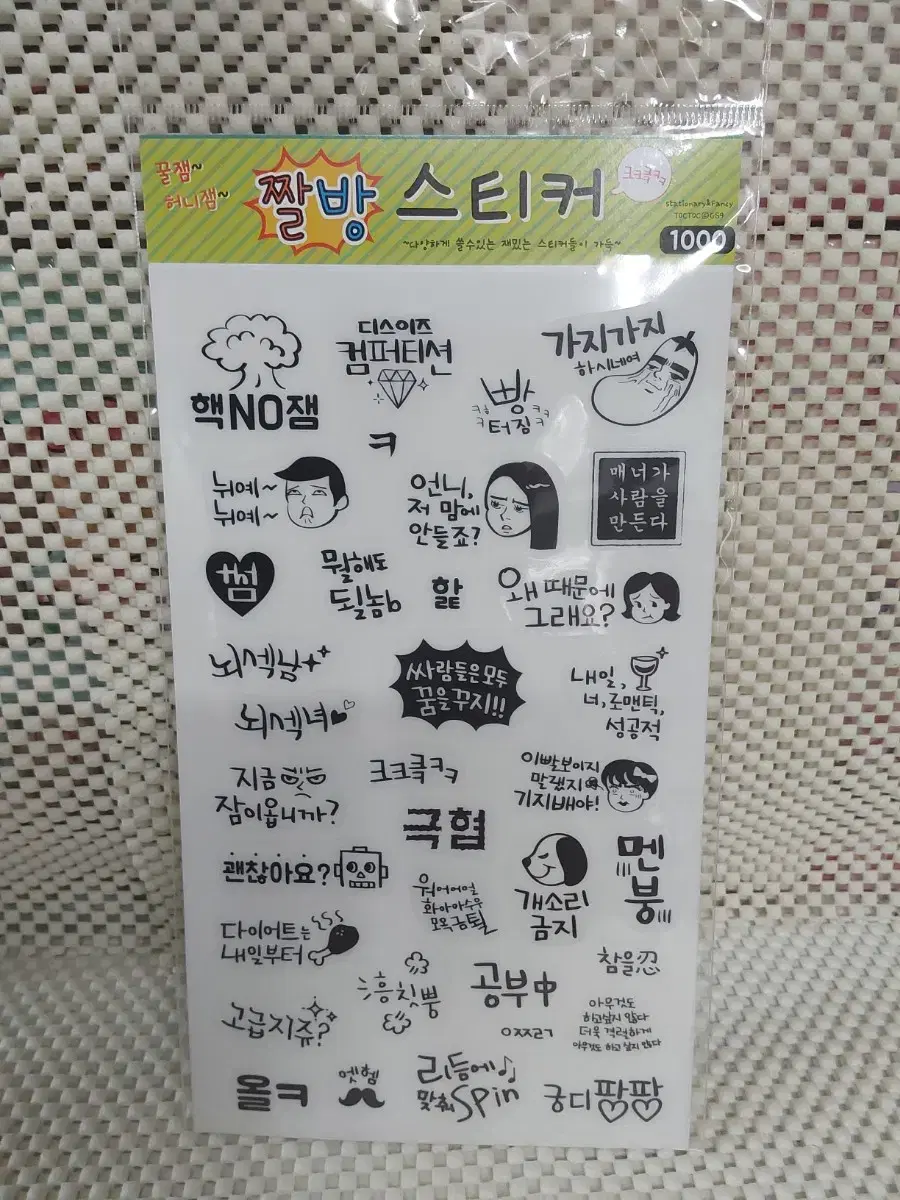 꿀잼~
허니잼~
짤방 스티커
크크큭ㅋㅋ
~다양하게 쓸수있는 재밌는 스티커들이 가득~
stationary&Fancy
TOCTOC
1000
핵NO잼
디스이즈
컴퍼티션
빵
ㅋㅋ ㅋㅋ
터짐
가지가지
하시네여
ㅋ
뉘예~
뉘예~
언니,
저 맘에
안들죠?
매너가
사람을
만든다
썸
뭘해도
될놈b
핥
왜 때문에
그래요?
뇌섹남
뇌섹녀
싸람들은모두
꿈을꾸지!!
내일,
너,로맨틱,
성공적
지금
잠이옵니까?
크크큭ㅋㅋ
이빨보이지
말랬지
기지배야!
극혐
괜찮아요?
워어어얼
화아아수우
모옥금퇼
개소리
금지
멘
붕
다이어트는
내일부터
흥칫뿡
공부中
참을忍
고급지쥬?
ㅇㅉㄹㄱ
아무것도
하고싶지 않다
더욱 격렬하게
아무것도 하고 싶지 않다
올ㅋ
엣헴
리듬에♪
맞춰 Spin
궁디팡팡